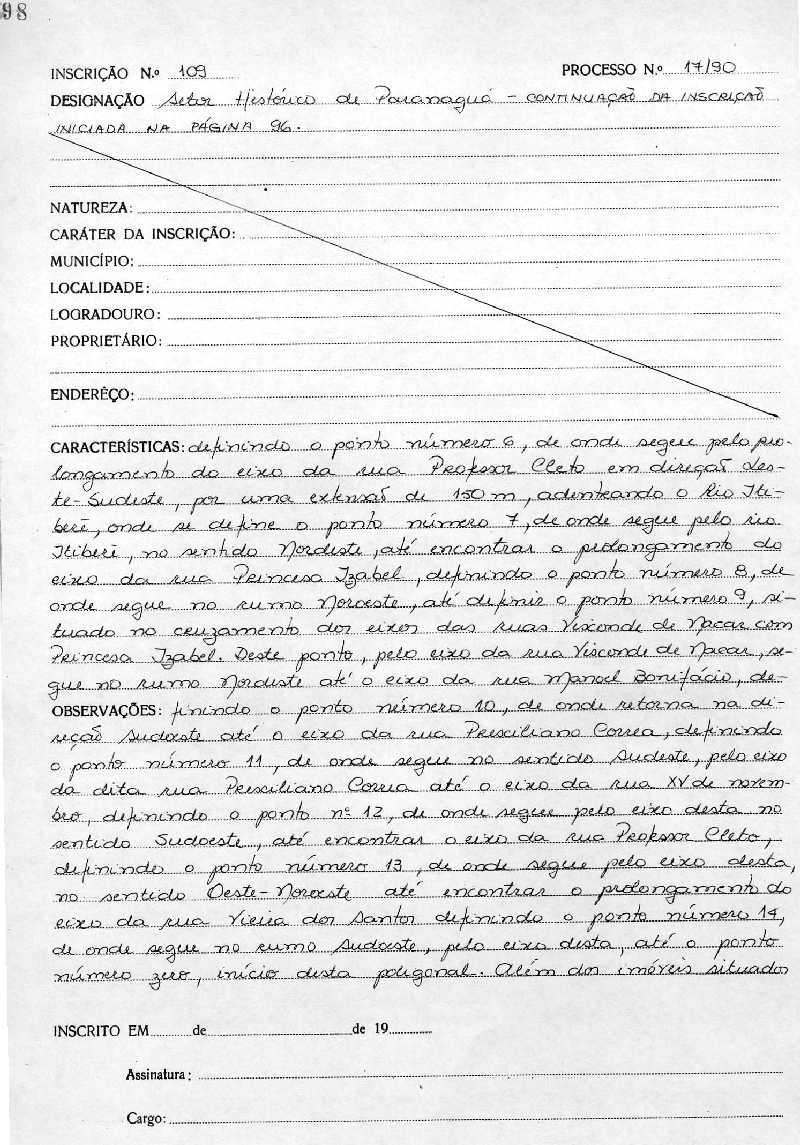 98
INSCRIÇÃO N.º 109 PROCESSO N.º 17/90
DESIGNAÇÃO Setor Histórico de Paranaguá - CONTINUAÇÃO DA INSCRIÇÃO
INICIADA NA PÁGINA 96.
NATUREZA:
CARÁTER DA INSCRIÇÃO:
MUNICÍPIO:
LOCALIDADE:
LOGRADOURO:
PROPRIETÁRIO:
ENDERÊÇO:
CARACTERÍSTICAS: definindo o ponto número 6, de onde segue pelo pro-
longamento do eixo da rua Professor Cleto em direção Les-
te-Sudeste, por uma extensão de 150 m, adentrando o Rio Iti-
berê, onde se define o ponto número 7, de onde segue pelo rio
Itiberê, no sentido Nordeste, até encontrar o prolongamento do
eixo da rua Princesa Izabel, definindo o ponto número 8, de
onde segue no rumo Noroeste, até definir o ponto número 9, si-
tuado no cruzamento dos eixos das ruas Visconde de Nacar com
Princesa Izabel. Deste ponto, pelo eixo da rua Visconde de Nacar, se-
gue no rumo Nordeste até o eixo da rua Manoel Bonifácio, de-
OBSERVAÇÕES: finindo o ponto número 10, de onde retorna na di-
reção Sudoeste até o eixo da rua Presciliano Correa, definindo
o ponto número 11, de onde segue no sentido Sudeste, pelo eixo
da dita rua Presciliano Correa até o eixo da rua XV de novem-
bro, definindo o ponto nº 12, de onde segue pelo eixo desta no
sentido Sudoeste, até encontrar o eixo da rua Professor Cleto,
definindo o ponto número 13, de onde segue pelo eixo desta,
no sentido Oeste-Noroeste até encontrar o prolongamento do
eixo da rua Vieira dos Santos definindo o ponto número 14,
de onde segue no rumo Sudoeste, pelo eixo desta, até o ponto
número zero, início desta poligonal. Além dos imóveis situados
INSCRITO EM de de 19
Assinatura:
Cargo: